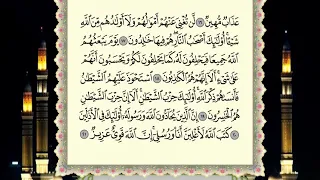 عَذَابٌ مُّهِينٌ ۝١٦ لَّن تُغْنِيَ عَنْهُمْ أَمْوَٰلُهُمْ وَلَآ أَوْلَٰدُهُم مِّنَ ٱللَّهِ
شَيْـًٔا ۚ أُو۟لَٰٓئِكَ أَصْحَٰبُ ٱلنَّارِ ۖ هُمْ فِيهَا خَٰلِدُونَ ۝١٧ يَوْمَ يَبْعَثُهُمُ
ٱللَّهُ جَمِيعًا فَيَحْلِفُونَ لَهُۥ كَمَا يَحْلِفُونَ لَكُمْ ۖ وَيَحْسَبُونَ أَنَّهُمْ
عَلَىٰ شَىْءٍ ۚ أَلَآ إِنَّهُمْ هُمُ ٱلْكَٰذِبُونَ ۝١٨ ٱسْتَحْوَذَ عَلَيْهِمُ ٱلشَّيْطَٰنُ
فَأَنسَىٰهُمْ ذِكْرَ ٱللَّهِ ۚ أُو۟لَٰٓئِكَ حِزْبُ ٱلشَّيْطَٰنِ ۚ أَلَآ إِنَّ حِزْبَ ٱلشَّيْطَٰنِ
هُمُ ٱلْخَٰسِرُونَ ۝١٩ إِنَّ ٱلَّذِينَ يُحَآدُّونَ ٱللَّهَ وَرَسُولَهُۥٓ أُو۟لَٰٓئِكَ فِى ٱلْأَذَلِّينَ
۝٢٠ كَتَبَ ٱللَّهُ لَأَغْلِبَنَّ أَنَا۠ وَرُسُلِىٓ ۚ إِنَّ ٱللَّهَ قَوِىٌّ عَزِيزٌ ۝٢١